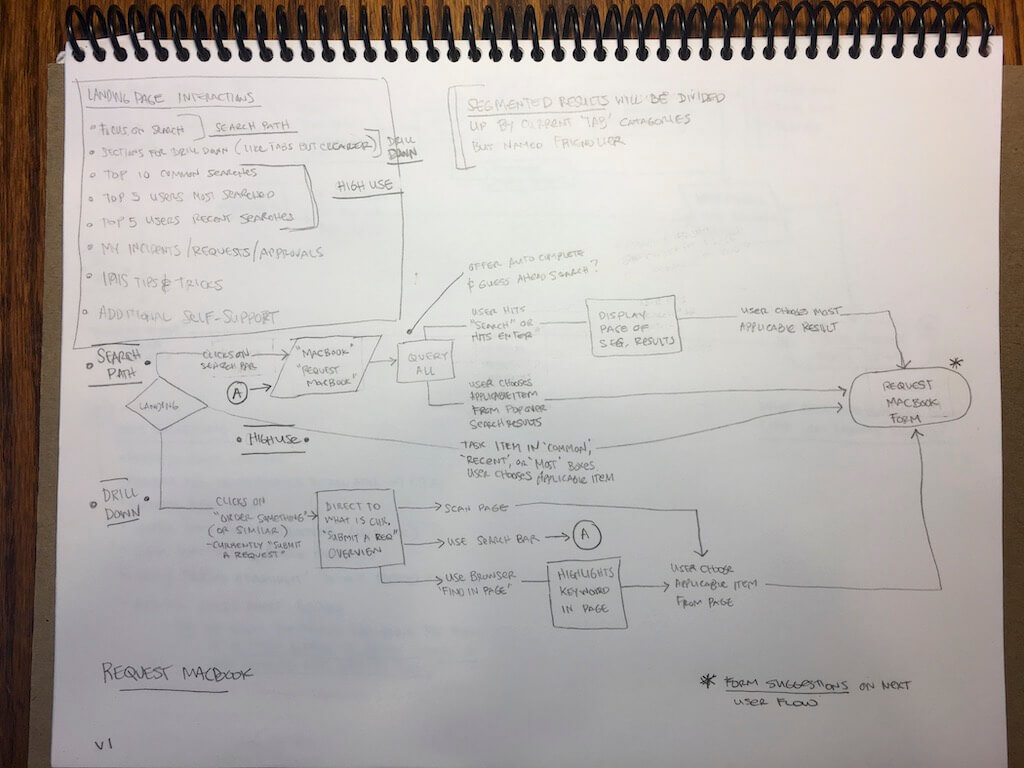 LANDING PAGE INTERACTIONS
• FOCUS ON SEARCH
SEARCH PATH
• SECTIONS FOR DRILL DOWN (LIKE TABS BUT CLEARER)
DRILL
DOWN
• TOP 10 COMMON SEARCHES
• TOP 5 USERS MOST SEARCHED
• TOP 5 USERS RECENT SEARCHES
HIGH USE
• MY INCIDENTS/REQUESTS/APPROVALS
• TIPS & TRICKS
• ADDITIONAL SELF-SUPPORT
SEGMENTED RESULTS WILL BE DIVIDED
UP BY CURRENT 'TAB' CATAGORIES
BUT NAMED FRIENDLIER
OFFER AUTO COMPLETE
& GUESS AHEAD SEARCH?
• SEARCH •
PATH
CLICKS ON
SEARCH BAR
"MACBOOK"
"REQUEST
MACBOOK"
A
QUERY
ALL
USER HITS
"SEARCH" OR
HITS ENTER"
DISPLAY
PAGE OF
SEG. RESULTS
USER CHOOSES MOST
APPLICABLE RESULT
USER CHOOSES
APPLICABLE ITEM
FROM POPOVER
SEARCH RESULTS
*
REQUEST
MACBOOK
FORM
LANDING
• HIGH USE •
TASK ITEM IN 'COMMON',
'RECENT', OR 'MOST' BOXES
USER CHOOSES APPLICABLE ITEM
• DRILL •
DOWN
CLICKS ON
"ORDER SOMETHING"
(OR SIMILAR)
-CURRENTLY "SUBMIT
A REQUEST"
DIRECT TO
WHAT IS CUR.
"SUBMIT A REQ"
OVERVIEW
SCAN PAGE
USE SEARCH BAR
A
USE BROWSER
"FIND IN PAGE"
HIGHLIGHTS
KEYWORD
IN PAGE
USER CHOOSE
APPLICABLE ITEM
FROM PAGE
REQUEST MACBOOK
* FORM SUGGESTIONS ON NEXT
USER FLOW
V1